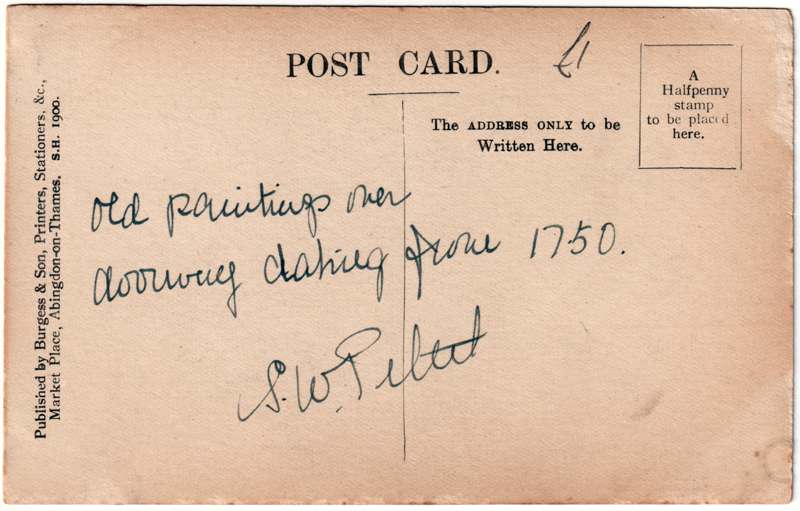 POST CARD.
£1
A
Halfpenny
stamp
to be placed
here.
The ADDRESS ONLY to be
Written Here.
old paintings over
doorway dating from 1750.
S. W.
Published by Burgess & Son, Printers, Stationers, &c.,
Market Place, Abingdon-on-Thames. S.H. 1900.